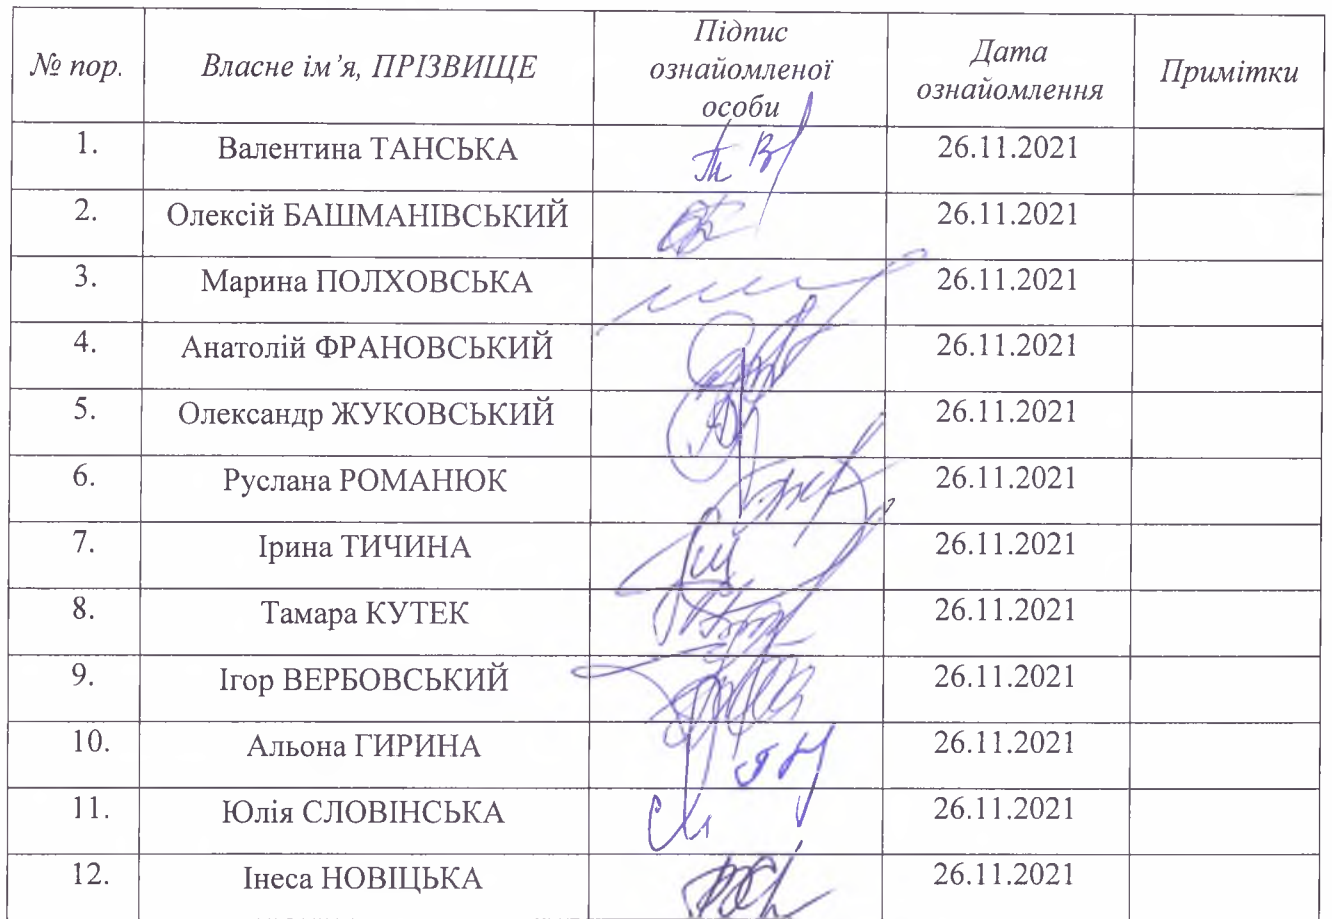 № пор. Власне ім’я, ПРІЗВИЩЕ Підпис ознайомленої особи Дата ознайомлення Примітки
1. Валентина ТАНСЬКА 26.11.2021
2. Олексій БАШМАНІВСЬКИЙ 26.11.2021
3. Марина ПОЛХОВСЬКА 26.11.2021
4. Анатолій ФРАНОВСЬКИЙ 26.11.2021
5. Олександр ЖУКОВСЬКИЙ 26.11.2021
6. Руслана РОМАНЮК 26.11.2021
7. Ірина ТИЧИНА 26.11.2021
8. Тамара КУТЕК 26.11.2021
9. Ігор ВЕРБОВСЬКИЙ 26.11.2021
10. Альона ГИРИНА 26.11.2021
11. Юлія СЛОВІНСЬКА 26.11.2021
12. Інеса НОВІЦЬКА 26.11.2021